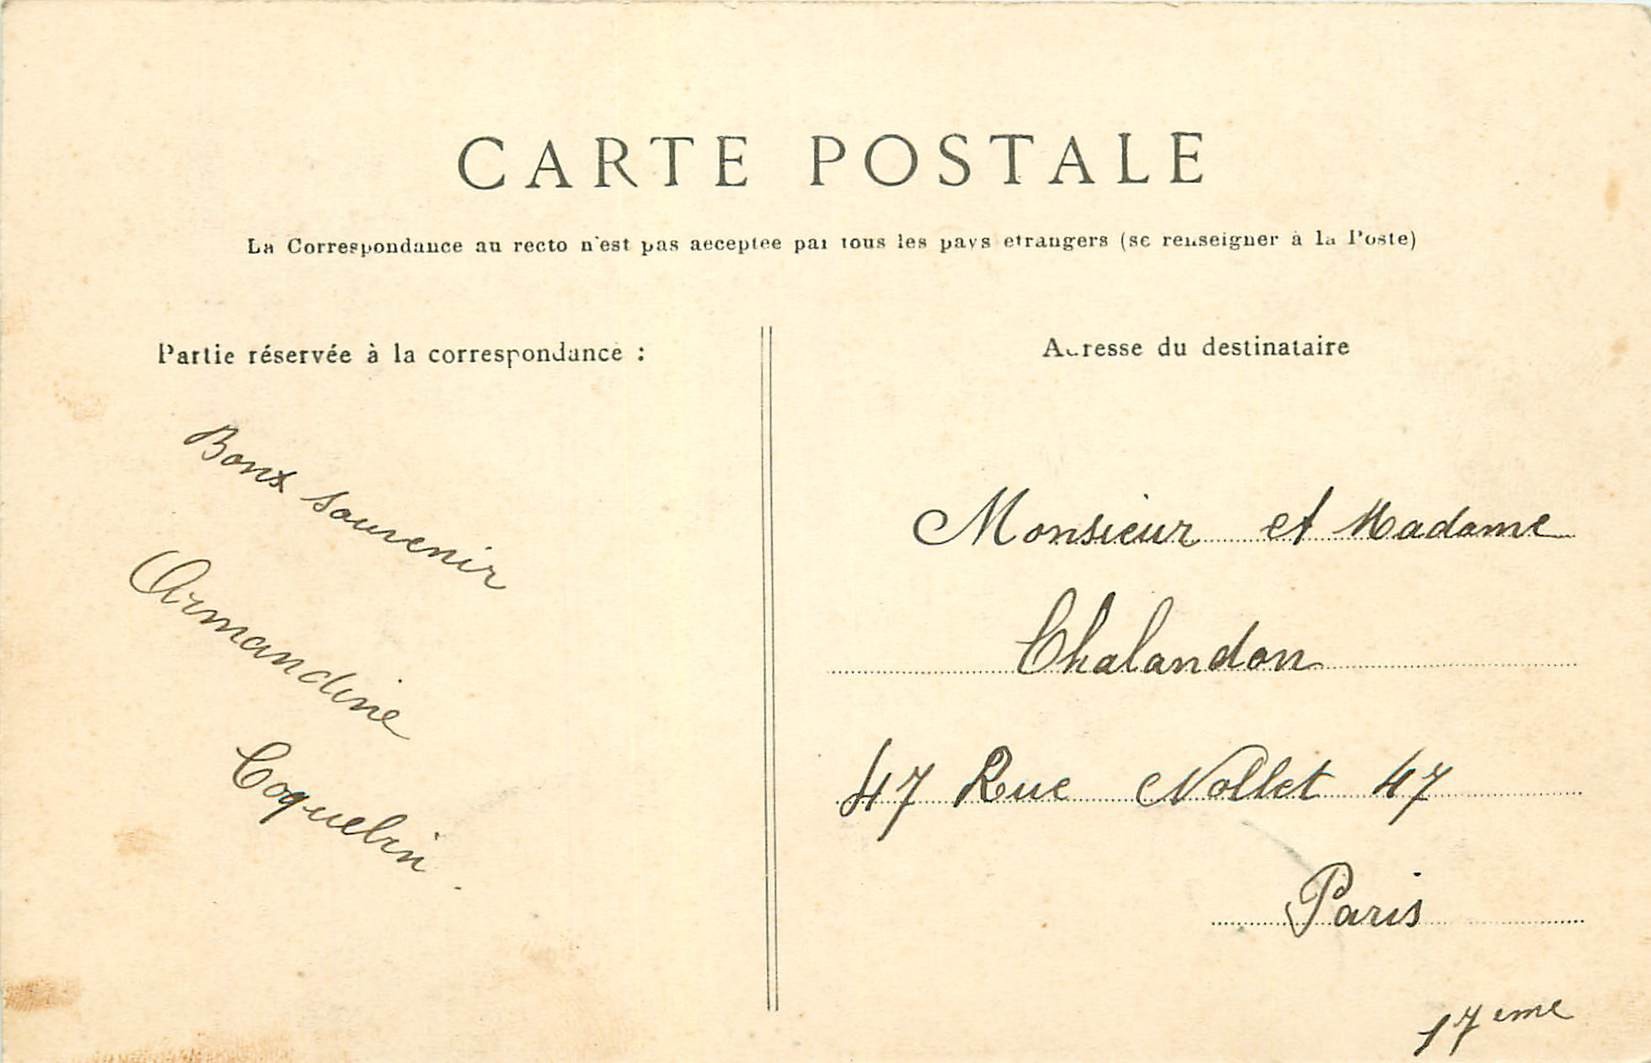 CARTE POSTALE
La Correspondance au recto n'est pas acceptée par tous les pays étrangers (se renseigner à la Poste)
Partie réservée à la correspondance :
Bonx souvenir
Armandine
Coquelin.
Adresse du destinataire
Monsieur et Madame
Chalandon
47 Rue Nollet 47
Paris
17ème